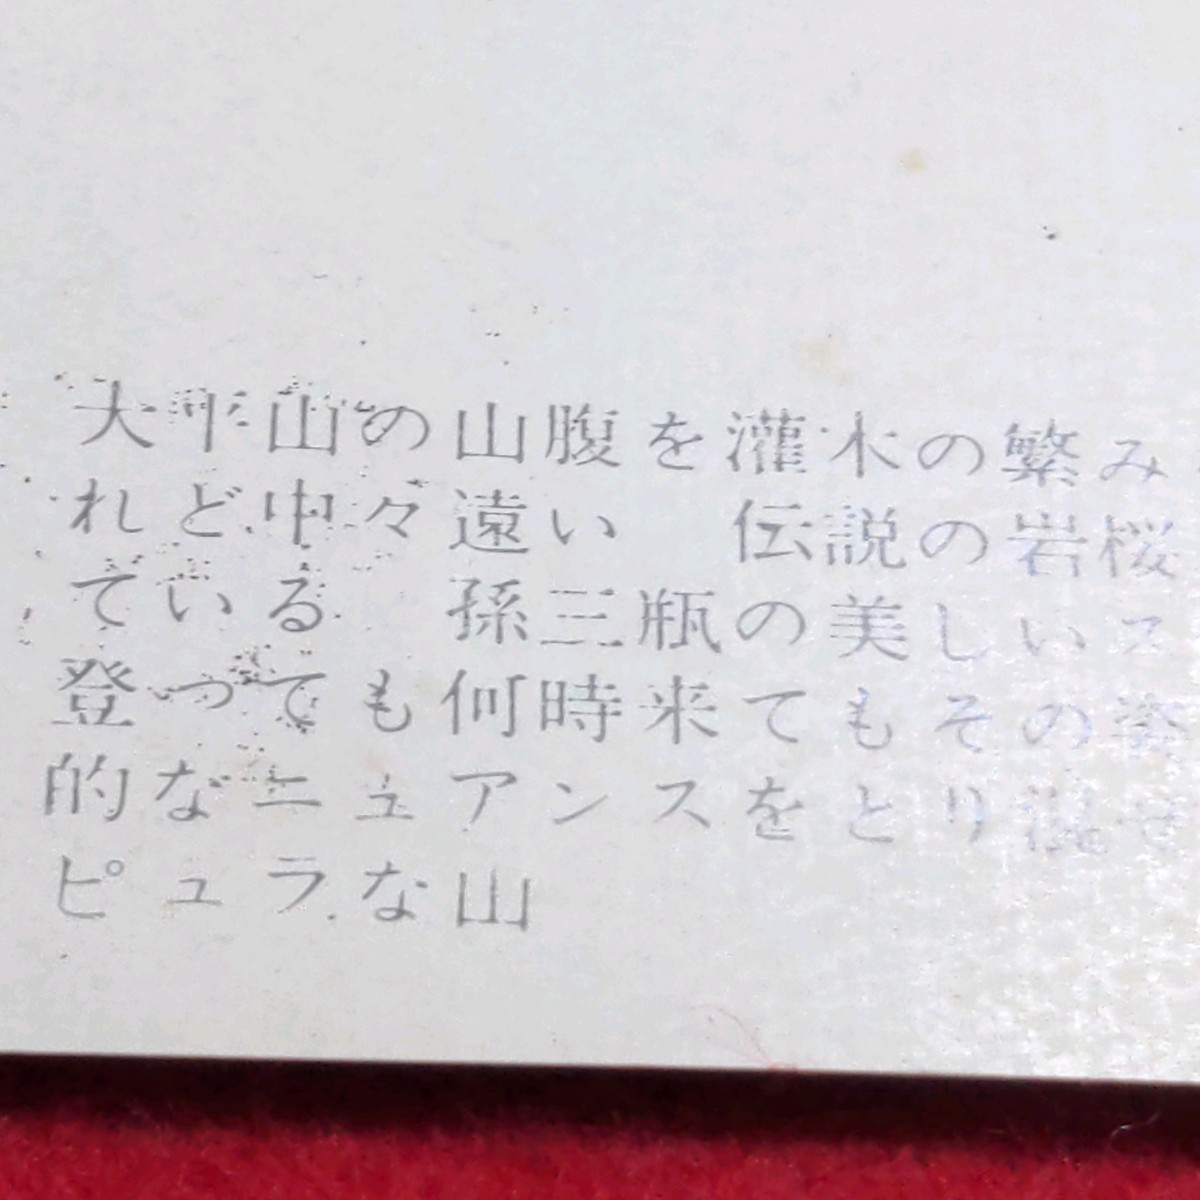 大平山の山腹を灌木の繁み
れど中々遠い　伝説の岩桜
ている　孫三瓶の美しいス
登っても何時来てもその姿
的なニュアンスをとり混ぜ
ピュラな山